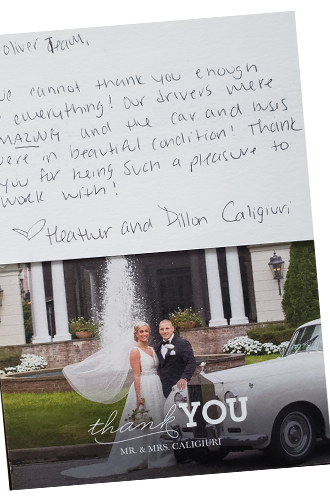 oliver Team,
we cannot thank you enough
everything! Our drivers were
AMAZING and the car and buses
were in beautiful condition! Thank
you for being such a pleasure to
work with!
♡ Heather and Dillon Caligiuri
thank YOU
MR. & MRS. CALIGIURI